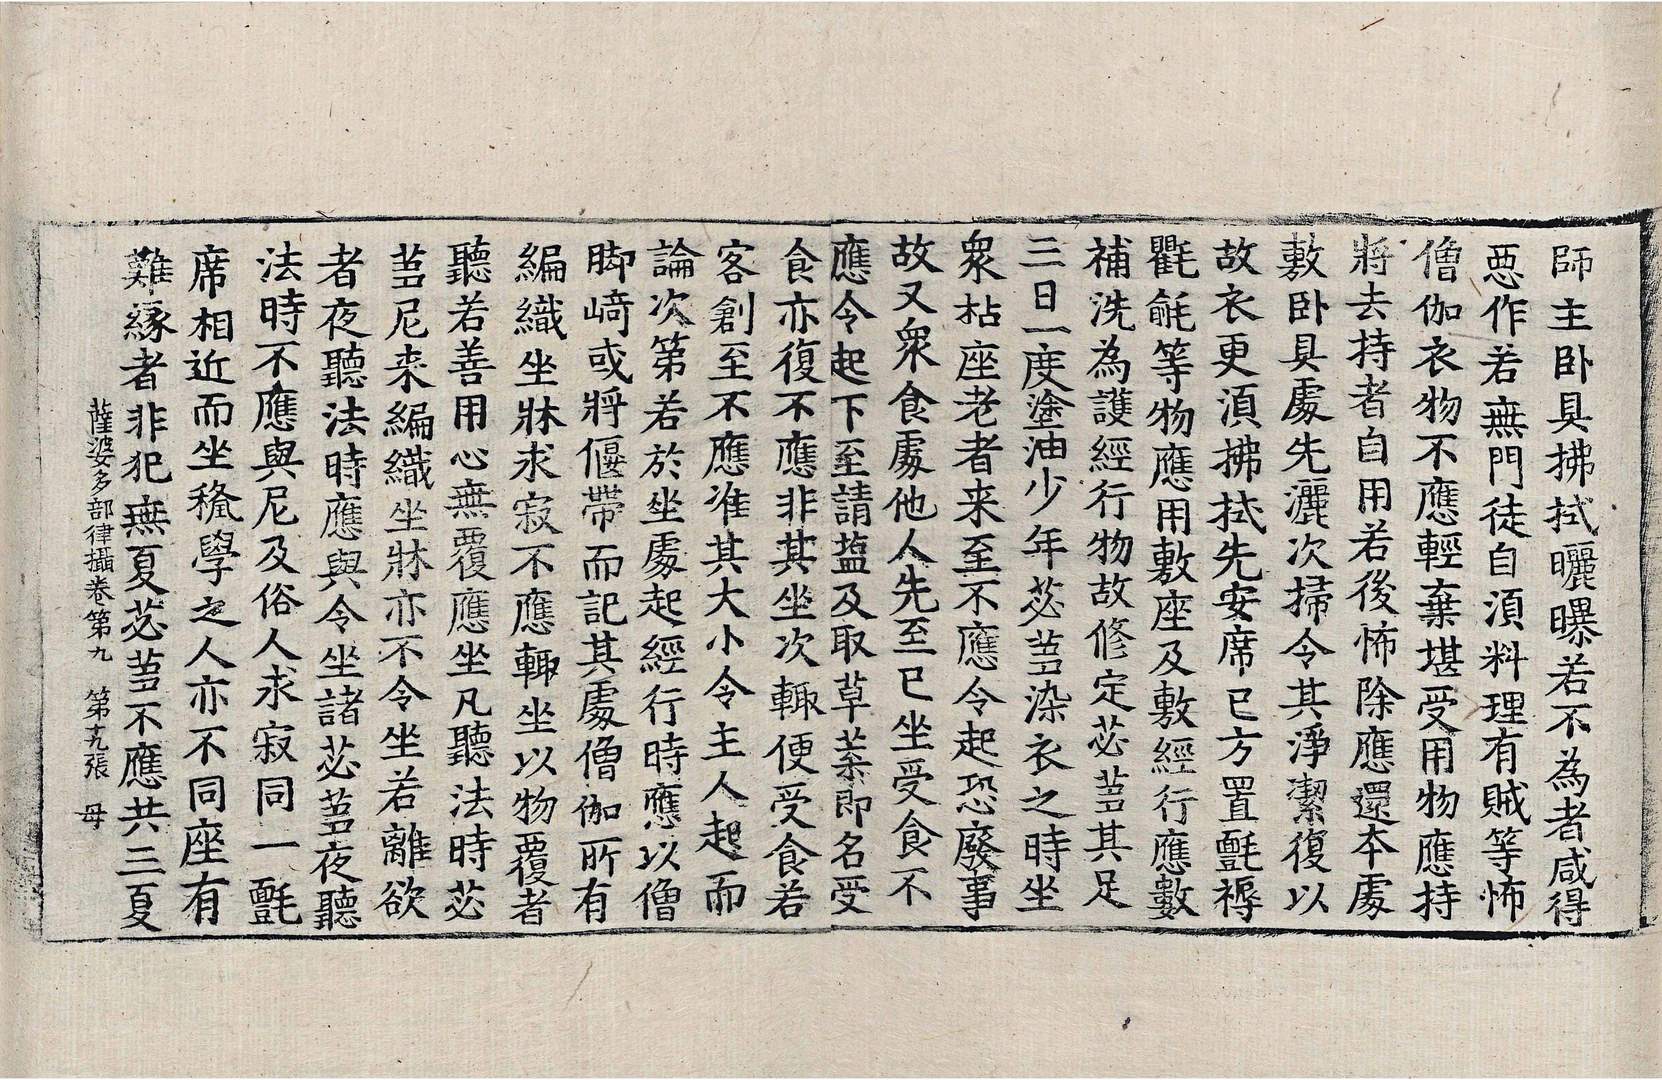 師主卧具拂拭曬曝若不為者咸得
惡作若無門徒自湏料理有賊等怖
僧伽衣物不應輕棄堪受用物應持
將去持者自用若後怖除應還本處
敷卧具處先灑次掃令其淨潔復以
故衣更湏拂拭先安席已方置氈褥
氍毹等物應用敷座及敷經行應數
補洗為護經行物故修定苾蒭其足
三日一度塗油少年苾蒭染衣之時坐
衆枯座老者来至不應令起恐廢事
故又衆食處他人先至已坐受食不
應令起下至請塩及取草葉即名受
食亦復不應非其坐次輙便受食若
客創至不應准其大小令主人起而
論次第若於坐處起經行時應以僧
脚崎或將偃帶而記其處僧伽所有
編織坐牀求寂不應輙坐以物覆者
聽若善用心無覆應坐凡聽法時苾
蒭尼来編織坐牀亦不令坐若離欲
者夜聽法時應與令坐諸苾蒭夜聽
法時不應與尼及俗人求寂同一氈
席相近而坐稺學之人亦不同座有
難縁者非犯無夏苾蒭不應共三夏
薩婆多部律攝卷第九　第十九張　母